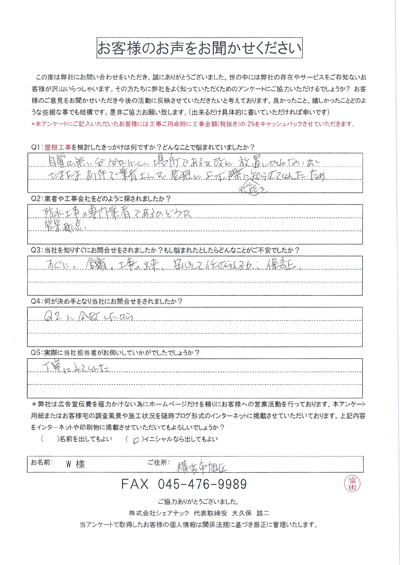 お客様のお声をお聞かせください
この度は弊社にお問い合わせをいただき、誠にありがとうございました。世の中には弊社の存在やサービスをご存知ないお
客様が沢山いらっしゃいます。その方たちに弊社をよく知っていただくためのアンケートにご協力いただけるでしょうか？ お客
様のご意見をお聞かせいただき今後の活動に反映させていただきたいと考えております。良かったこと、嬉しかったことどのよ
うな些細な事でも結構です。是非ご協力お願い致します。（出来るだけ具体的に書いていただければ幸いです）
*本アンケートにご記入いただいたお客様には工事ご用命時に工事金額（税抜き）の2%をキャッシュバックさせていただきます。
Q1：屋根工事を検討したきっかけは何ですか？どんなことで悩まれていましたか？
Q2：業者や工事会社をどのように探されましたか？
防水工事の専門業者であるのどうか
Q3：当社を知りすぐにお問合せをされましたか？もし悩まれたとしたらどんなことがご不安でしたか？
すぐに。金額、工事の出来、
保証
Q4：何が決め手となり当社にお問合せをされましたか？
Q2に合致したから
Q5：実際に当社担当者がお伺いしていかがでしたでしょうか？
＊弊社は広告宣伝費を極力かけない為にホームページだけを頼りにお客様への営業活動を行っております。本アンケート
用紙またはお客様宅の調査風景や施工状況を随時ブログ形式のインターネットに掲載させていただいております。上記内容
をインターネットや印刷物に掲載させていただいてもよろしいでしょうか？
（　）名前を出してもよい　（○）イニシャルなら出してもよい
お名前： W 様　ご住所： 横浜市旭区
FAX 045-476-9989
ご協力ありがとうございました。
株式会社シェアテック 代表取締役 大久保 誠二
当アンケートで取得したお客様の個人情報は関係法規に基づき厳正に管理いたします。